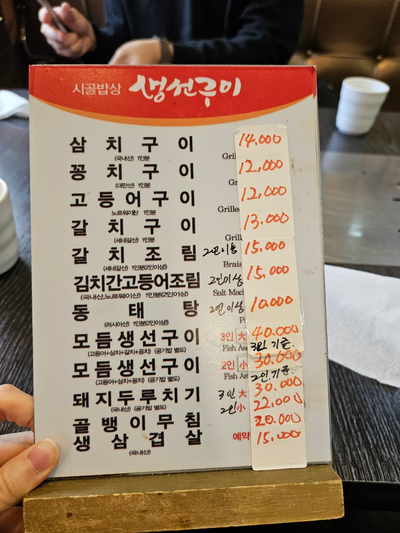 시골밥상 생선구이
삼 치 구 이 14.000
(국내산) 1인분 Grill
꽁 치 구 이 12.000
(대만산) 1인분 Gr
고 등 어 구 이 12.000
노르웨이산 1인분 Grille
갈 치 구 이 13.000
(세네갈산) 1인분 Gril
갈 치 조 림 2인이상 15.000
(세네갈산) 1인분(2인이상) Brais
김치간고등어조림 2인이상 15.000
(국내산,노르웨이산) 1인분(2인이상) Salt Mac
동 태 탕 2인이상 10.000
(러시아산) 1인분(2인이상)
모듬생선구이 3인 大 40.000
(고등어+삼치+갈치+꽁치) (공기밥 별도) Fish As 3인기준
모듬생선구이 2인 小 30.000
(고등어+삼치+꽁치) (공기밥 별도) Fish As 2인기준
돼지두루치기 3인 大 30.000
(국내산) (공기밥 별도) 2인 小 22.000
골뱅이무침 20.000
생 삼 겹 살 예약 15.000
(국내산)